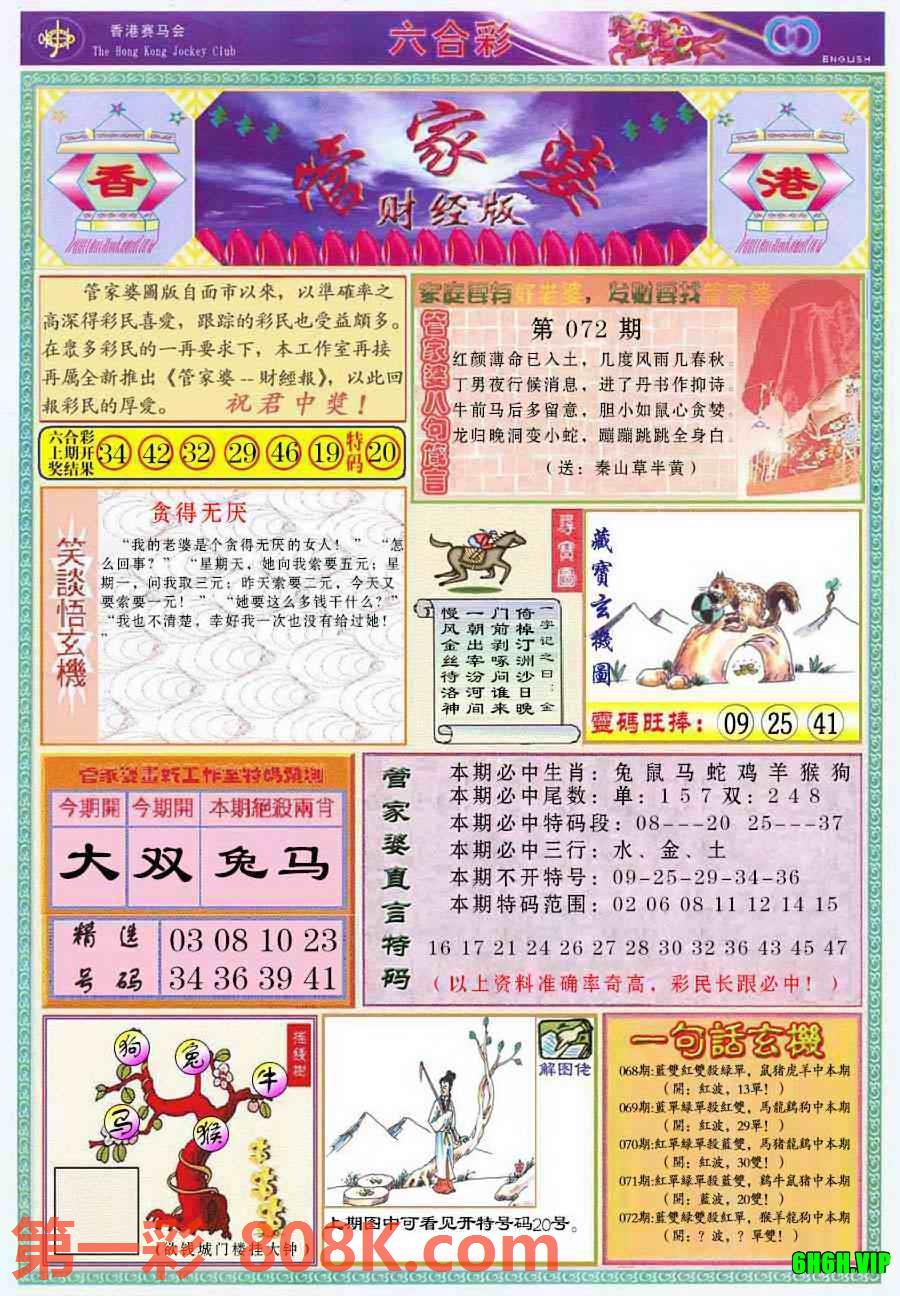 香港赛马会
The Hong Kong Jockey Club
六合彩
ENGLISH
香
管家婆
财经版
港
管家婆圖版自面市以來，以準確率之
高深得彩民喜愛，跟踪的彩民也受益頗多。
在眾多彩民的一再要求下，本工作室再接
再厲全新推出《管家婆--財經報》，以此回
報彩民的厚愛。 祝君中奬！
六合彩
上期开
奖结果
34 42 32 29 46 19 特码 20
家庭要有好老婆，发财要找管家婆
管家婆八句箴言
第 072 期
红颜薄命已入土，几度风雨几春秋。
丁男夜行候消息，进了丹书作抑诗。
牛前马后多留意，胆小如鼠心贪婪。
龙归晚洞变小蛇，蹦蹦跳跳全身白。
（送：秦山草半黄）
笑談悟玄機
贪得无厌
“我的老婆是个贪得无厌的女人！” “怎
么回事？” “星期天，她向我索要五元；星
期一，问我取三元；昨天索要二元，今天又
要索要一元！” “她要这么多钱干什么？”
“我也不清楚，幸好我一次也没有给过她！
”
尋寶圖
一字记之曰：金
倚棹汀洲沙日晚
门前剥啄问谁来
一朝出宰汾河间
慢风金丝待洛神
藏寳玄機圖
靈碼旺捧： 09 25 41
管家婆最新工作室特码预测
今期開 今期開 本期絕殺兩肖
大 双 兔马
精选号码
03 08 10 23
34 36 39 41
管家婆直言特码
本期必中生肖：兔鼠马蛇鸡羊猴狗
本期必中尾数：单：1 5 7 双：2 4 8
本期必中特码段：08---20 25---37
本期必中三行：水、金、土
本期不开特号：09-25-29-34-36
本期特码范围：02 06 08 11 12 14 15
16 17 21 24 26 27 28 30 32 36 43 45 47
（以上资料准确率奇高，彩民长跟必中！）
摇錢樹
狗
兔
牛
马
猴
（欲钱城门楼挂大钟）
解图佬
上期图中可看见开特号码20号。
一句話玄機
068期:藍雙紅雙殺綠單，鼠猪虎羊中本期
（開：紅波，13單！）
069期:藍單綠單殺紅雙，馬龍鷄狗中本期
（開：紅波，29單！）
070期:紅單綠單殺藍雙，馬猪龍鷄中本期
（開：紅波，30雙！）
071期:紅雙綠單殺藍單，鷄牛鼠猪中本期
（開：藍波，20雙！）
072期:藍雙綠雙殺紅單，猴羊龍狗中本期
（開：？波，？單雙！）
第一彩 808K.com
6H6H.VIP